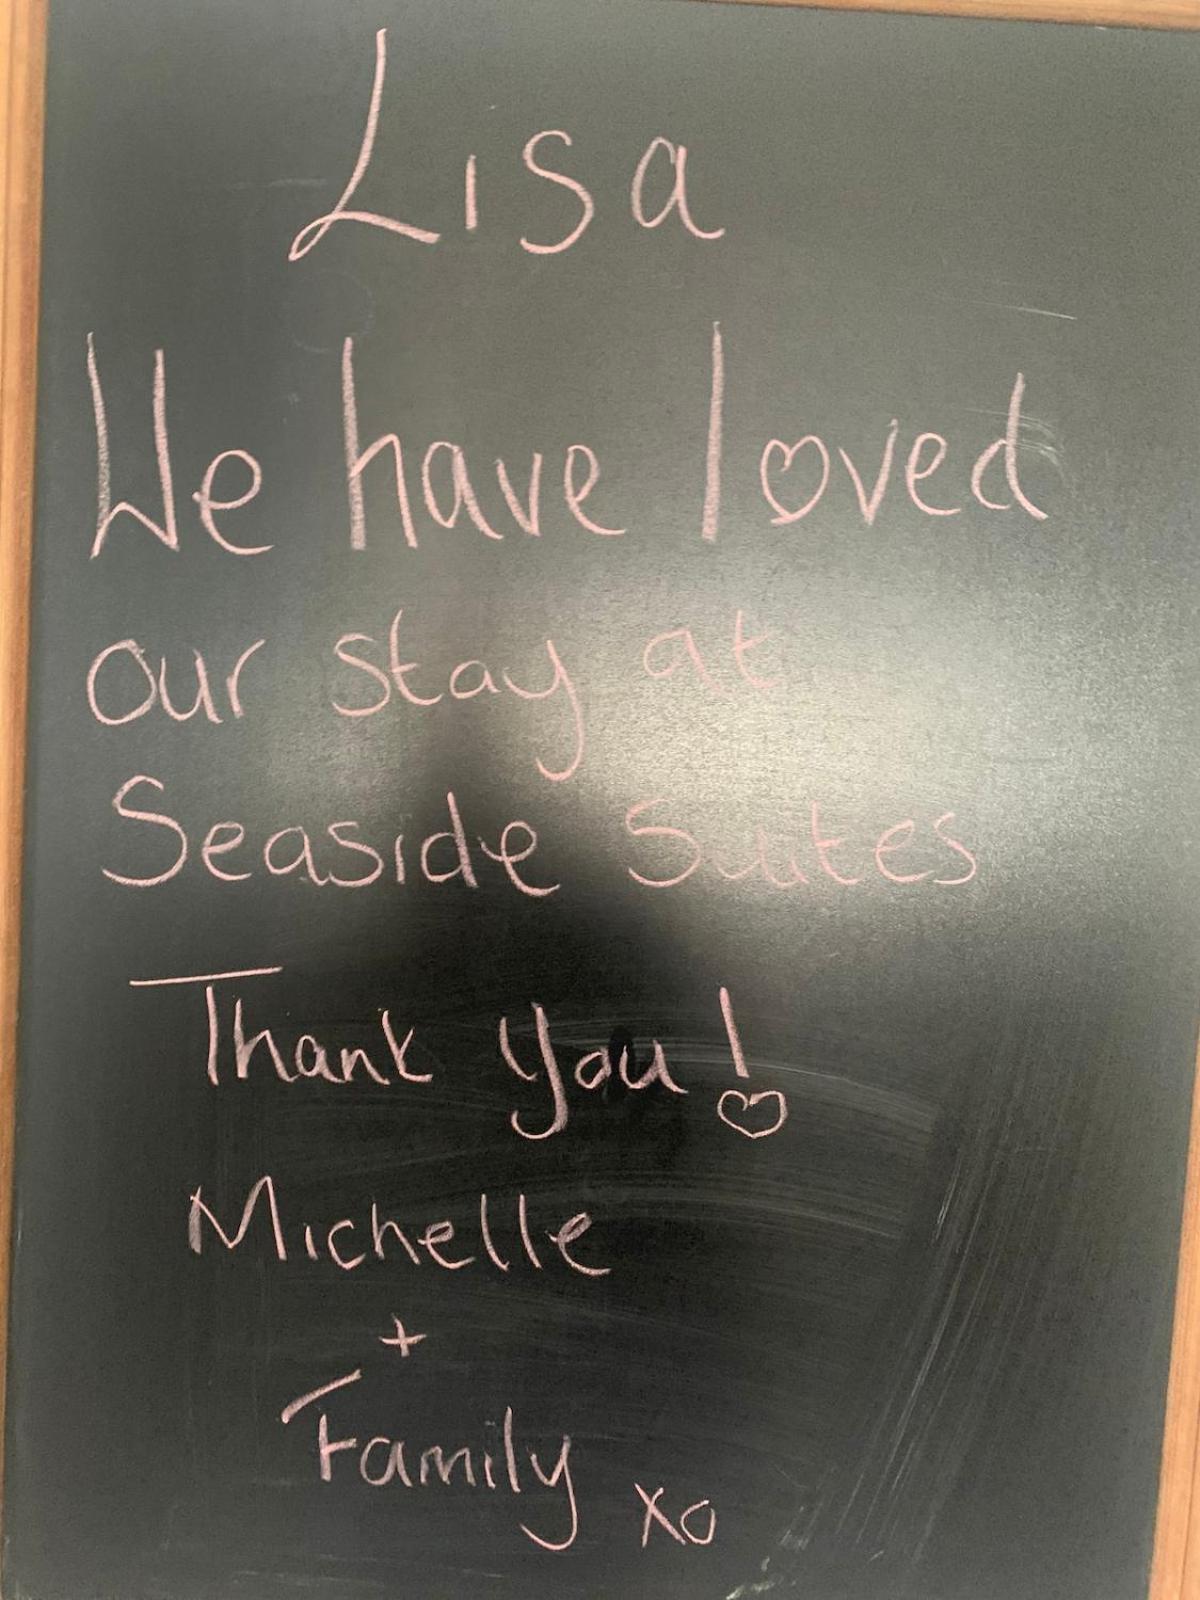 Lisa
We have loved
our stay at
Seaside Suites
Thank you!
Michelle
+
Family xo